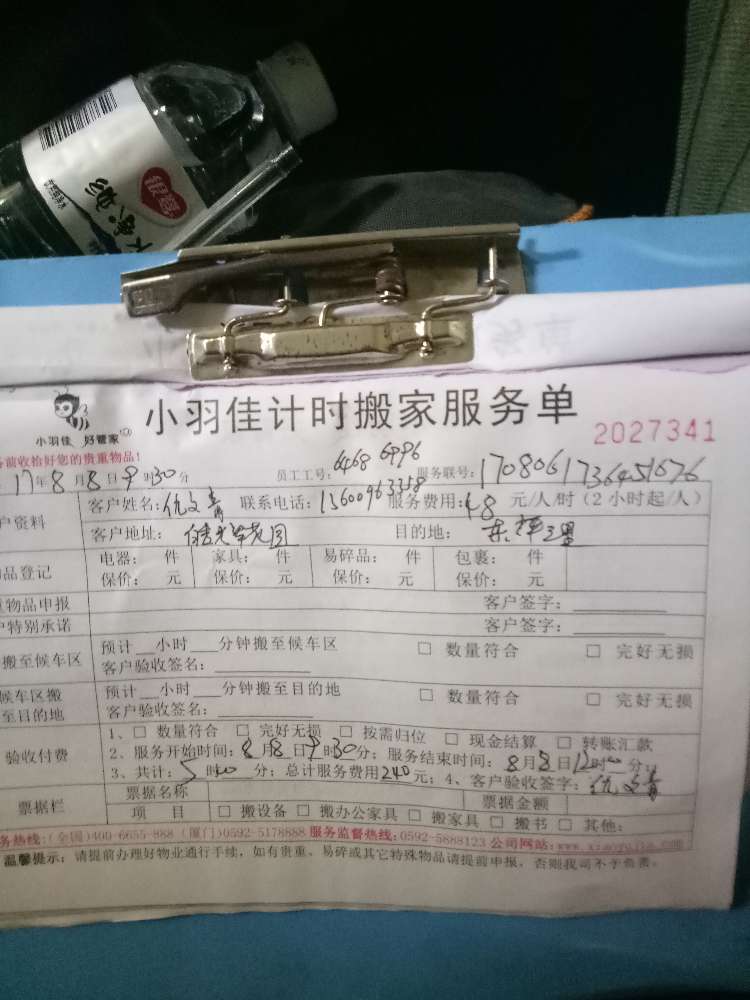 银鹭
小羽佳 好管家
小羽佳计时搬家服务单
2027341
务前收拾好您的贵重物品!
17年8月8日9时30分 员工工号: 6468 6996 服务联号: 1708061736451676
户资料 客户姓名: 联系电话: 15600963358 服务费用: 48 元/人/时(2小时起/人)
客户地址: 花园 目的地:
品登记 电器: 件 家具: 件 易碎品: 件 包裹: 件
保价: 元 保价: 元 保价: 元 保价: 元
物品申报 客户签字:
户特别承诺 客户签字:
搬至候车区 预计__小时___分钟搬至候车区 □ 数量符合 □ 完好无损
客户验收签名:
候车区搬至目的地 预计__小时___分钟搬至目的地 □ 数量符合 □ 完好无损
客户验收签名:
验收付费 1、□ 数量符合 □ 完好无损 □ 按需归位 □ 现金结算 □ 转账汇款
2、服务开始时间: 8月8日9时30分; 服务结束时间: 8月8日12时00分;
3、共计: 5时00分; 总计服务费用240元; 4、客户验收签字:
票据栏 票据名称 票据金额
项 目 □ 搬设备 □ 搬办公家具 □ 搬家具 □ 搬书 □ 其他:
务热线:(全国)400-6655-888 (厦门)0592-5178888 服务监督热线:0592-5888123 公司网站:
温馨提示: 请提前办理好物业通行手续, 如有贵重、易碎或其它特殊物品请提前申报, 否则我司不予负责。